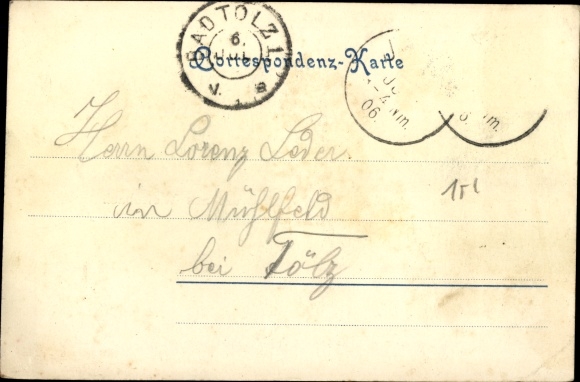 BAD TÖLZ I.
6
JUL
V. 8
Correspondenz-Karte
4 Nm.
06.
Herrn Lorenz Leder.
in Mühlfeld
bei Tölz